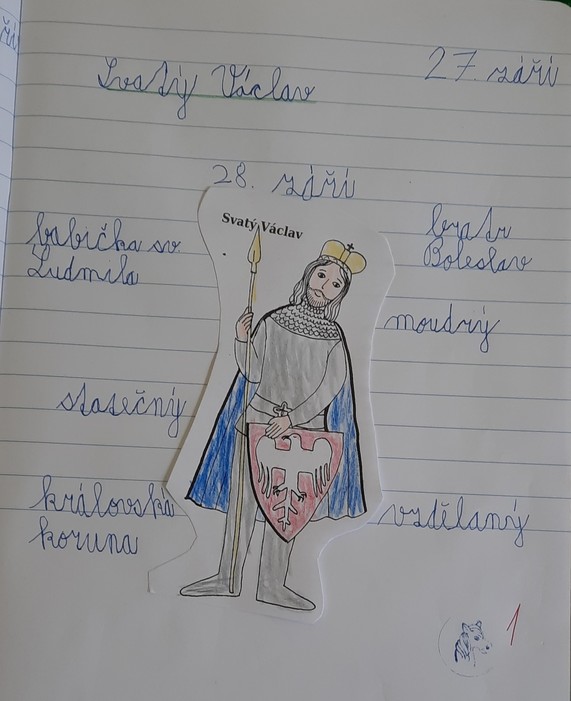 Svatý Václav
27. září
28. září
Svatý Václav
babička sv
Ludmila
bratr
Boleslav
moudrý
statečný
královská
koruna
vzdělaný
1